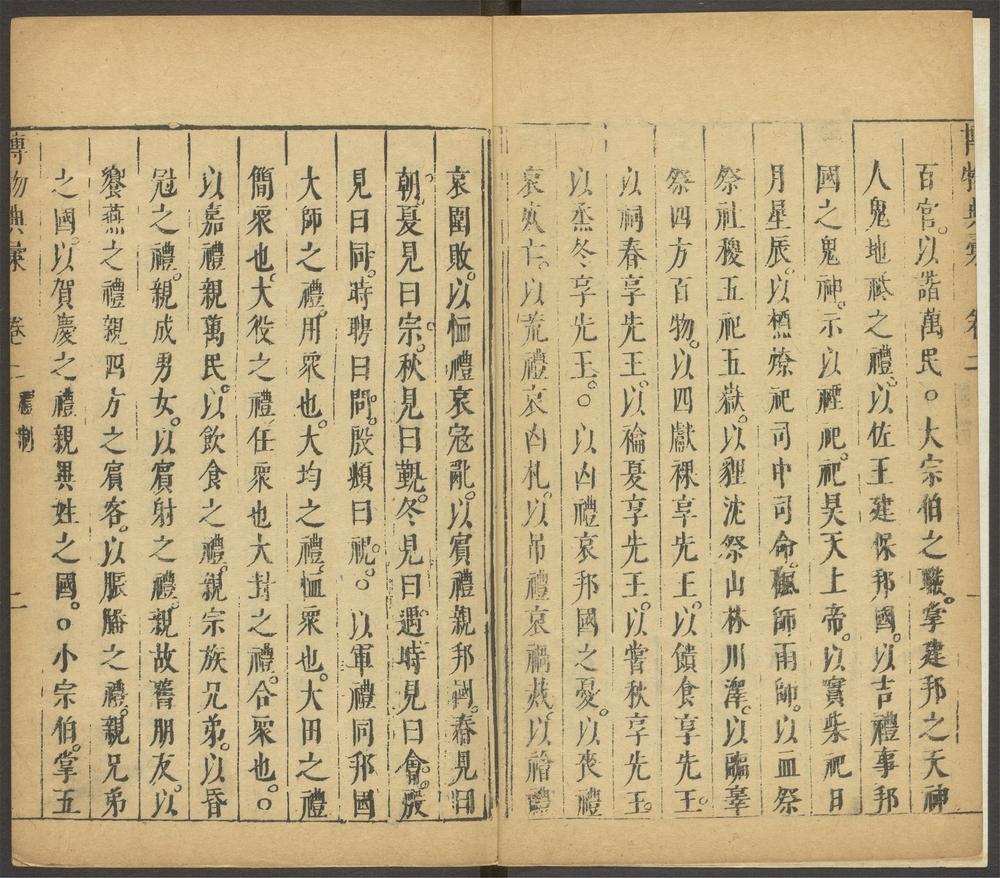 博物典彙 卷二 一
百官。以諧萬民。○大宗伯之職。掌建邦之天神
人鬼地祗之禮。以佐王建保邦國。以吉禮事邦
國之鬼神。示以禋祀。祀昊天上帝。以實柴祀日
月星辰。以槱燎祀司中司命。飌師雨師。以血祭
祭社稷五祀五嶽。以貍沈祭山林川澤。以疈辜
祭四方百物。以四獻祼享先王。以饋食享先王。
以祠春享先王。以禴夏享先王。以嘗秋享先王。
以烝冬享先王。○以凶禮哀邦國之憂。以喪禮
哀死亡。以荒禮哀凶札。以吊禮哀禍烖。以禬禮
哀圍敗。以恤禮哀寇亂。以賓禮親邦國。春見曰
朝。夏見曰宗。秋見曰覲。冬見曰遇。時見曰會。殷
見曰同。時聘曰問。殷頫曰視。○以軍禮同邦國
大師之禮。用衆也。大均之禮。恤衆也。大田之禮
簡衆也。大役之禮任衆也大封之禮。合衆也。○
以嘉禮親萬民。以飲食之禮。親宗族兄弟。以昏
冠之禮。親成男女。以賓射之禮。親故舊朋友。以
饗燕之禮親四方之賓客。以脤膰之禮。親兄弟
之國。以賀慶之禮親異姓之國。○小宗伯。掌五
博物典彙 卷二 禮制 二